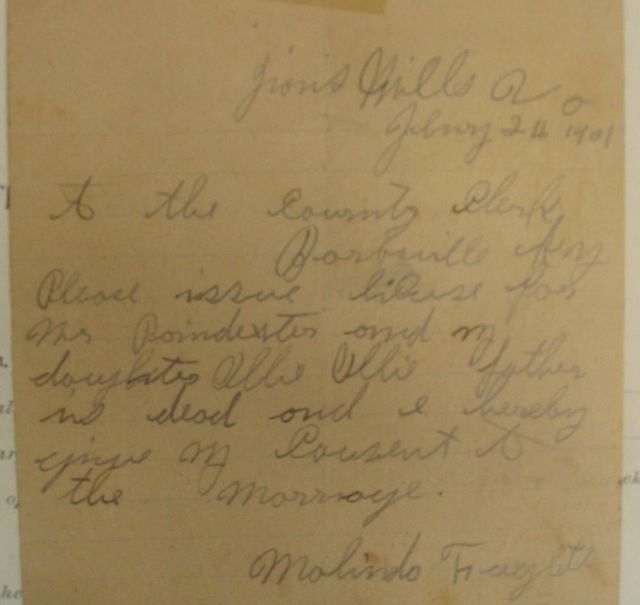 Mills
24 1901
to the County Clerk
Barbourville Ky
Please issue license for
Mr Poindexter and my
daughter Ollie Ollie father
is dead and I hereby
give my Consent to
the Marriage.
Malinda